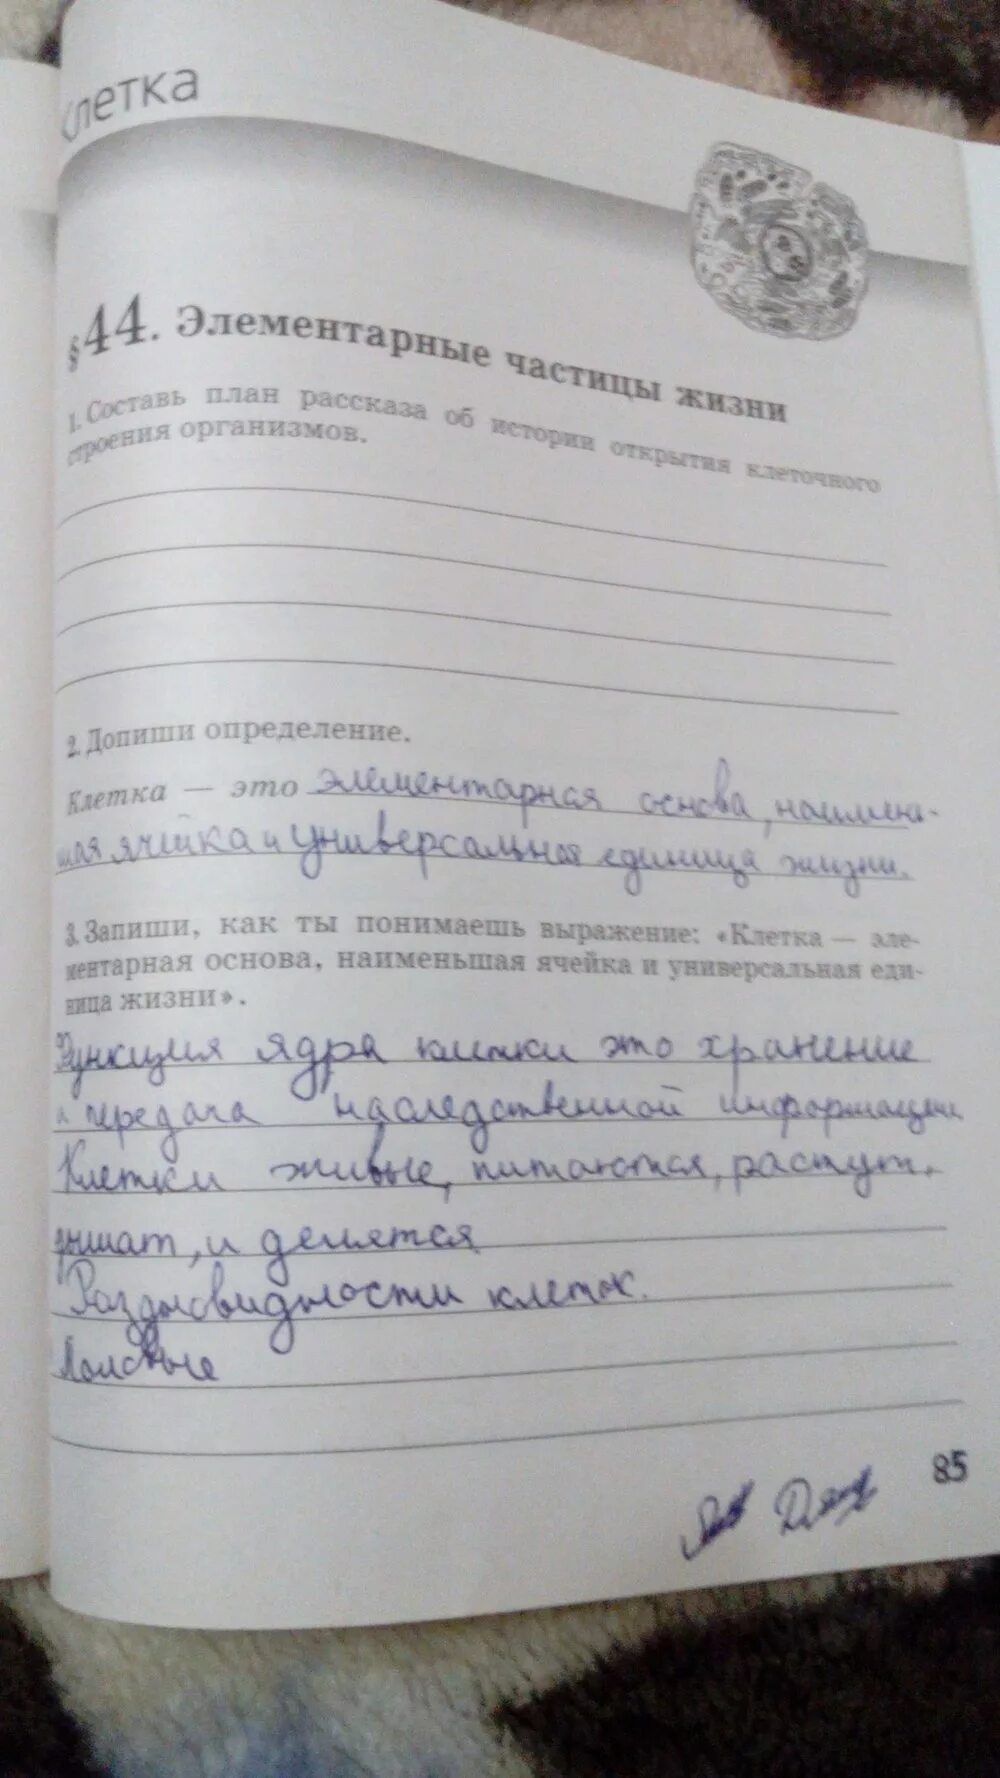 клетка
§44. Элементарные частицы жизни
1. Составь план рассказа об истории открытия клеточного
строения организмов.
2. Допиши определение.
Клетка — это элементарная основа, наимень-
шая ячейка и универсальная единица жизни.
3. Запиши, как ты понимаешь выражение: «Клетка — эле-
ментарная основа, наименьшая ячейка и универсальная еди-
ница жизни».
Функция ядра клетки это хранение
и передача наследственной информации
Клетки живые, питаются, растут,
дышат, и делятся
Разновидности клеток.
85